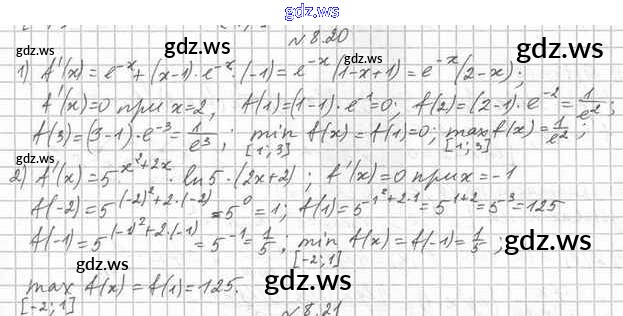 gdz.ws
№8.20
gdz.ws gdz.ws
1) A'(x)=e^{-x}+(x-1)·e^{-x}·(-1)=e^{-x}(1-x+1)=e^{-x}(2-x);
A'(x)=0 при x=2, A(1)=(1-1)·e^{-1}=0; A(2)=(2-1)·e^{-2}=\frac{1}{e^2};
A(3)=(3-1)·e^{-3}=\frac{1}{e^3}; min_{[1;3]} A(x)=A(1)=0; max_{[1;3]} A(x)=\frac{1}{e^2};
gdz.ws gdz.ws gdz.ws
2) A'(x)=5^{x^2+2x}·ln5·(2x+2); A'(x)=0 при x=-1
A(-2)=5^{(-2)^2+2·(-2)}=5^0=1; A(1)=5^{-1^2+2·1}=5^{1+2}=5^3=125
gdz.ws gdz.ws
A(-1)=5^{(-1)^2+2·(-1)}=5^{-1}=\frac{1}{5}; min_{[-2;1]} A(x)=A(-1)=\frac{1}{5};
gdz.ws gdz.ws
max_{[-2;1]} A(x)=A(1)=125.
gdz.ws
№8.21